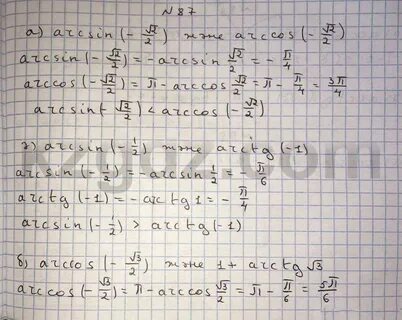 №87
а) arcsin(-√2/2) және arccos(-√2/2)
arcsin(-√2/2) = -arcsin √2/2 = -π/4
arccos(-√2/2) = π - arccos √2/2 = π - π/4 = 3π/4
arcsin(-√2/2) < arccos(-√2/2)
ә) arcsin(-1/2) және arctg(-1)
arcsin(-1/2) = -arcsin 1/2 = -π/6
arctg(-1) = -arctg1 = -π/4
arcsin(-1/2) > arctg(-1)
б) arccos(-√3/2) және 1 + arctg√3
arccos(-√3/2) = π - arccos √3/2 = π - π/6 = 5π/6
kzgdz.com